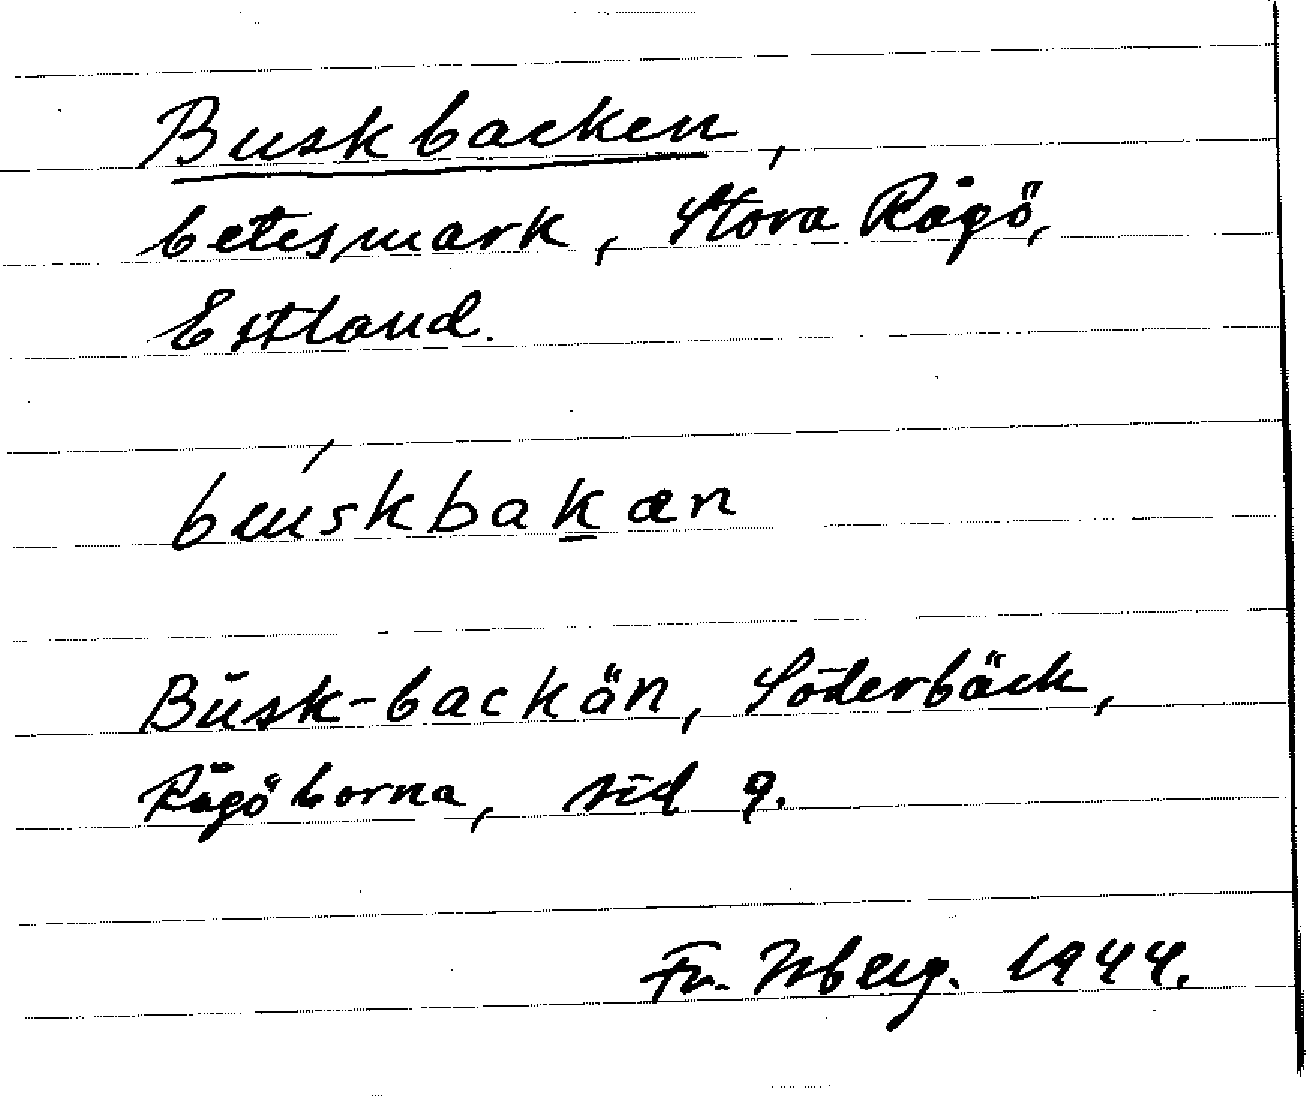 Buskbacken,
betesmark, Stora Rågö,
Estland.
búskbakæn
Busk-backän, Söderbäck,
Rågöborna, sid 9.
Fr. Isberg. 1944.